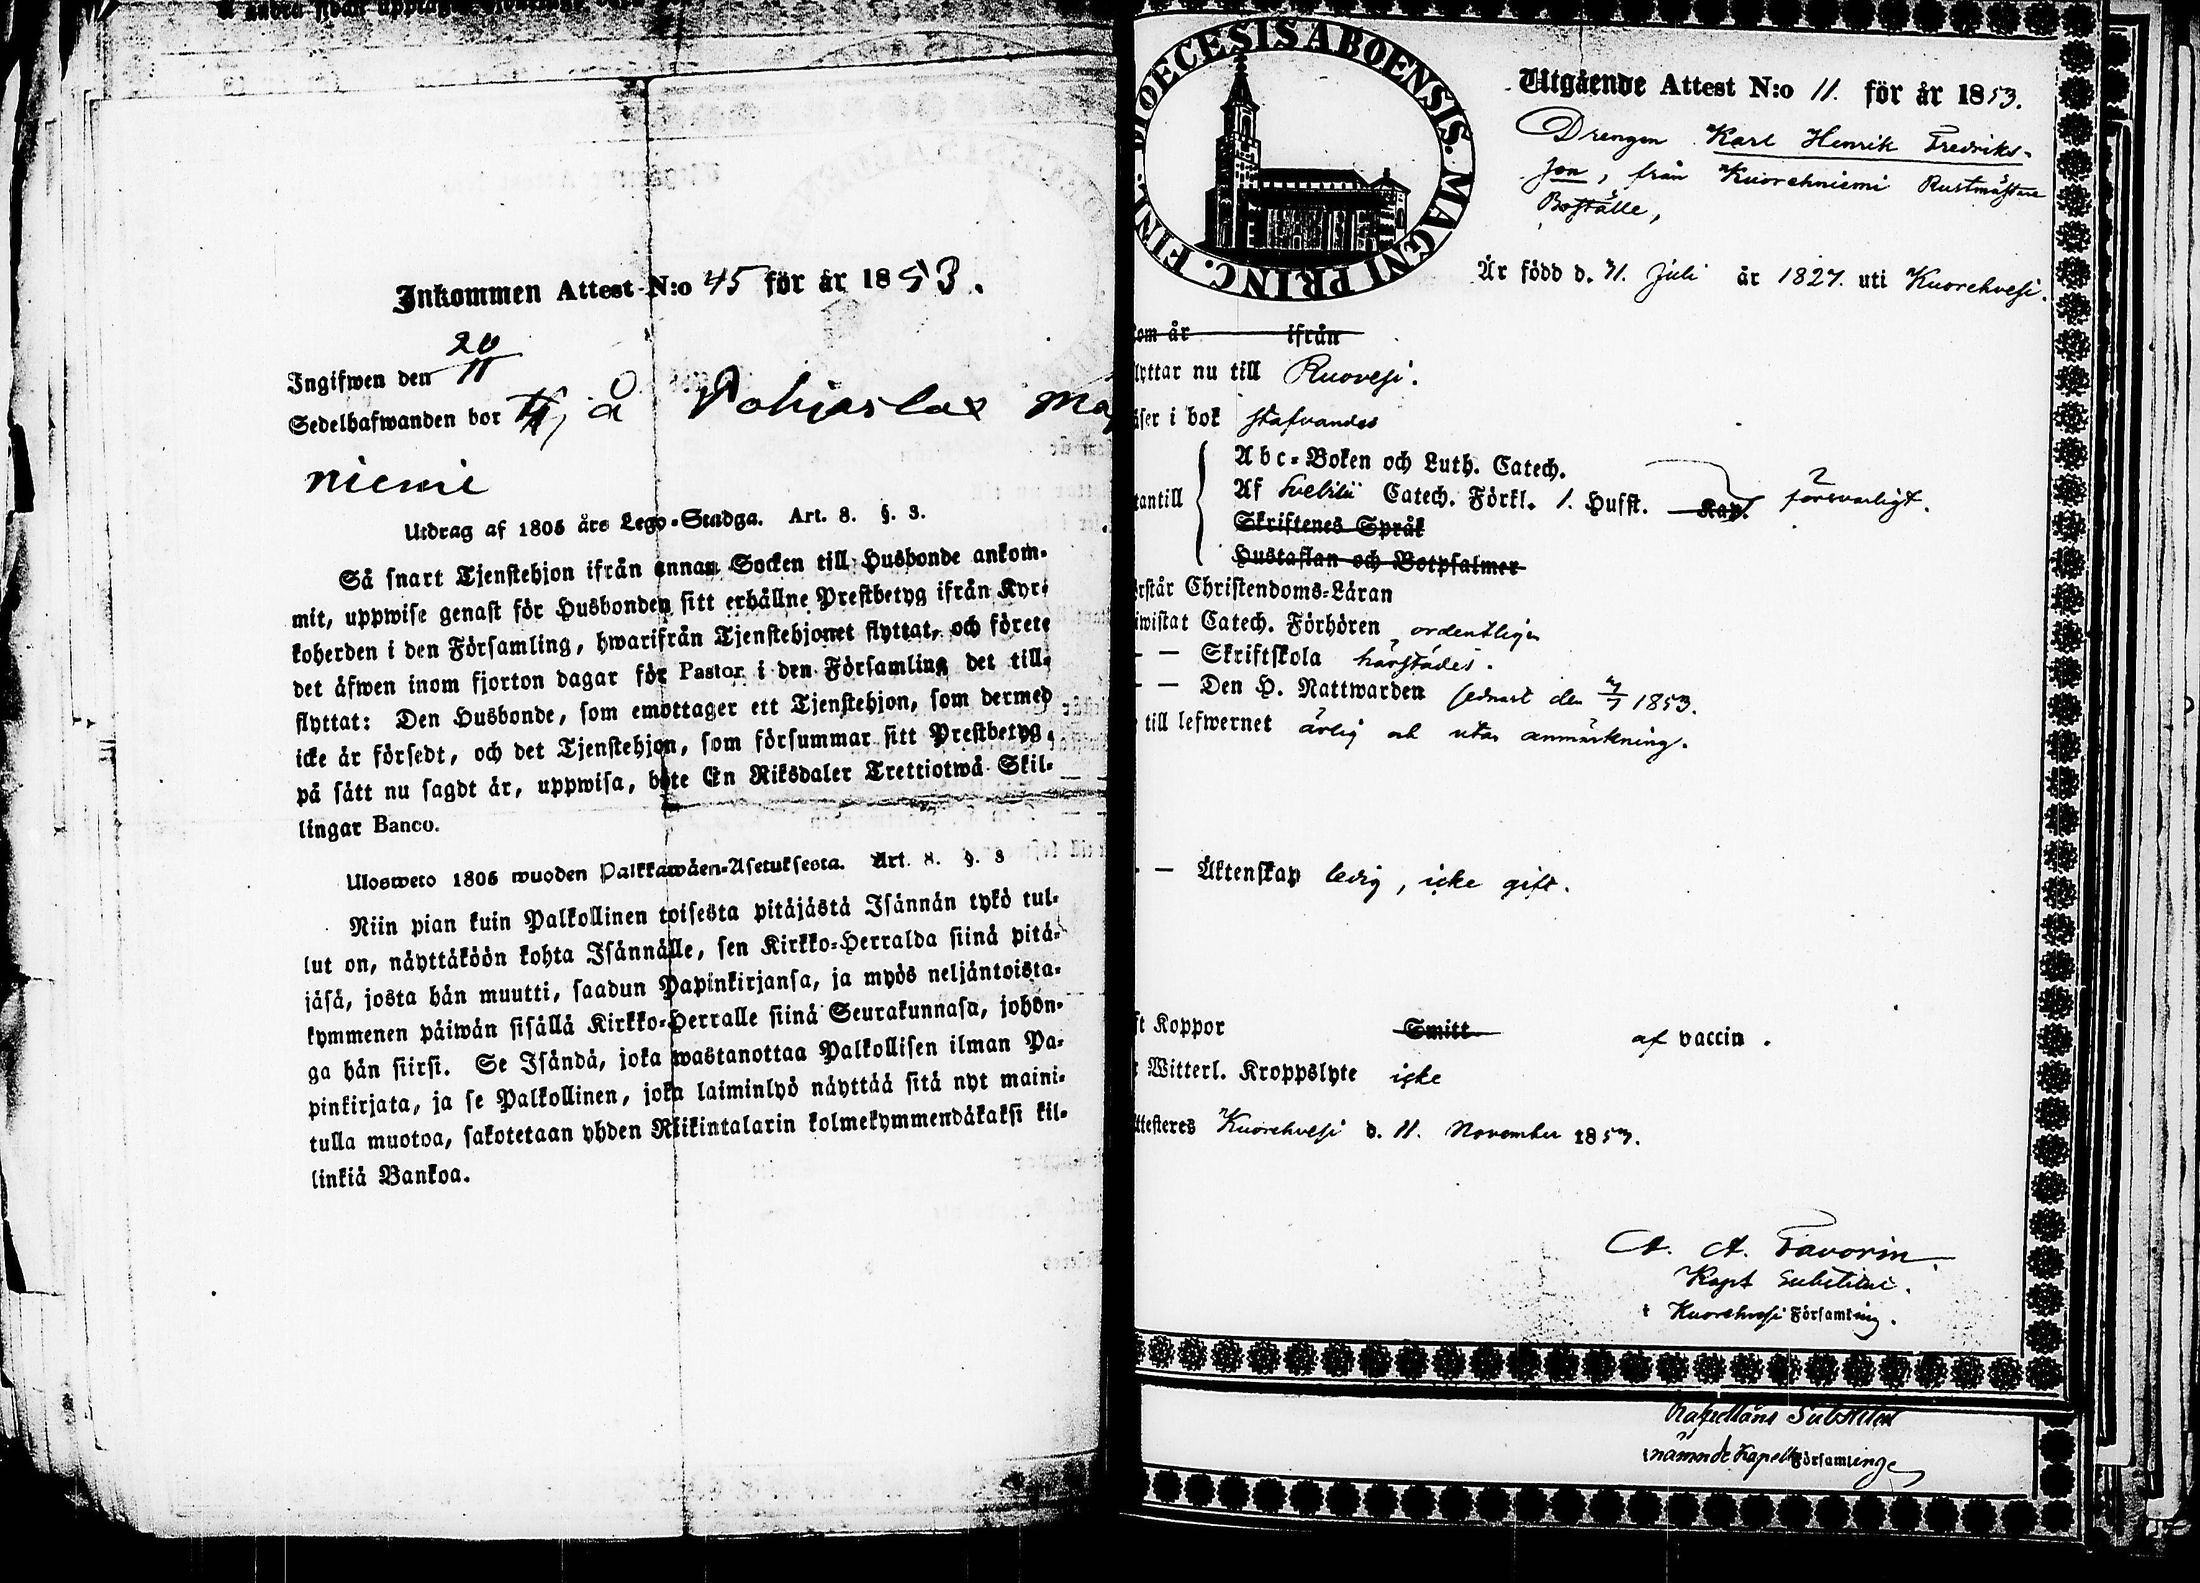 Inkommen Attest N:o 45 för år 1853.
Ingifwen den 20/11
Sedelhafwanden bor å Pohjaslax
niemi
Utdrag af 1805 års Lego-Stadga. Art. 8. §. 3.
Så snart Tjenstehjon ifrån annan Socken till Husbonde ankom-
mit, uppwise genast för Husbonden sitt erhållne Prestbetyg ifrån Kyr-
koherden i den Församling, hwarifrån Tjenstehjonet flyttat, och förete
det äfwen inom fjorton dagar för Pastor i den Församling det till-
flyttat: Den Husbonde, som emottager ett Tjenstehjon, som dermed
icke är försedt, och det Tjenstehjon, som försummar sitt Prestbetyg,
på sätt nu sagdt är, uppwisa, böte En Riksdaler Trettiotwå Skil-
lingar Banco.
Ulosweto 1805 wuoden Palkkawäen-Asetuksesta. Art. 8. §. 3
Niin pian kuin Palkollinen toisesta pitäjästä Isännän tykö tul-
lut on, näyttäköön kohta Isännälle, sen Kirkko-Herralda siinä pitä-
jäsä, josta hän muutti, saadun Papinkirjansa, ja myös neljäntoista-
kymmenen päiwän sisällä Kirkko-Herralle siinä Seurakunnasa, johon-
ga hän siirsi. Se Isändä, joka wastanottaa Palkollisen ilman Pa-
pinkirjata, ja se Palkollinen, joka laiminlyö näyttää sitä nyt maini-
tulla muotoa, sakotetaan yhden Riikintalarin kolmekymmendäkaksi kil-
linkiä Bankoa.
DIOECESIS ABOENSIS. MAGNI PRINC. FINL.
Utgående Attest N:o 11. för år 1853.
Drengen Karl Henrik Fredriks-
son, från Kuorehniemi Rustmästare
Boställe,
Är född d. 31. Juli år 1827. uti Kuorehvesi.
kom år ifrån
flyttar nu till Ruovesi.
läser i bok stafvandes
Abc-Boken och Luth. Catech.
utantill Af Svebilii Catech. Förkl. 1. Hufst. Kap. försvarligt.
Skriftenes Språk
Hustaflan och Botpsalmer
förstår Christendoms-Läran
biwistat Catech. Förhören ordentligen
— — Skriftskola härstädes.
— — Den H. Nattwarden sednast den 1853.
till lefwernet ärlig och utan anmärkning.
— — Äktenskap ledig, icke gift.
haft Koppor Smitt af vaccin.
Witterl. Kroppslyte icke
Attesteres Kuorehvesi d. 11. November 1853.
A. A. Favorin.
Kapl Substitut.
i Kuorehvesi Församling.
Kapellans Substitut
nämnde Kapell Församlinge